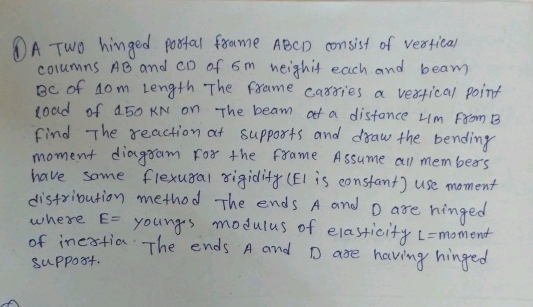 ① A TWO hinged portal frame ABCD consist of vertical
columns AB and CD of 5m heighit each and beam
BC of 10m Length The frame carries a vertical point
load of 150 KN on The beam at a distance 4m from B
find The reaction at supports and draw the bending
moment diagram For the frame Assume all members
have same flexural rigidity (EI is constant) use moment
distribution method The ends A and D are hinged
where E= youngs modulus of elasticity I=moment
of inertia. The ends A and D are having hinged
support.